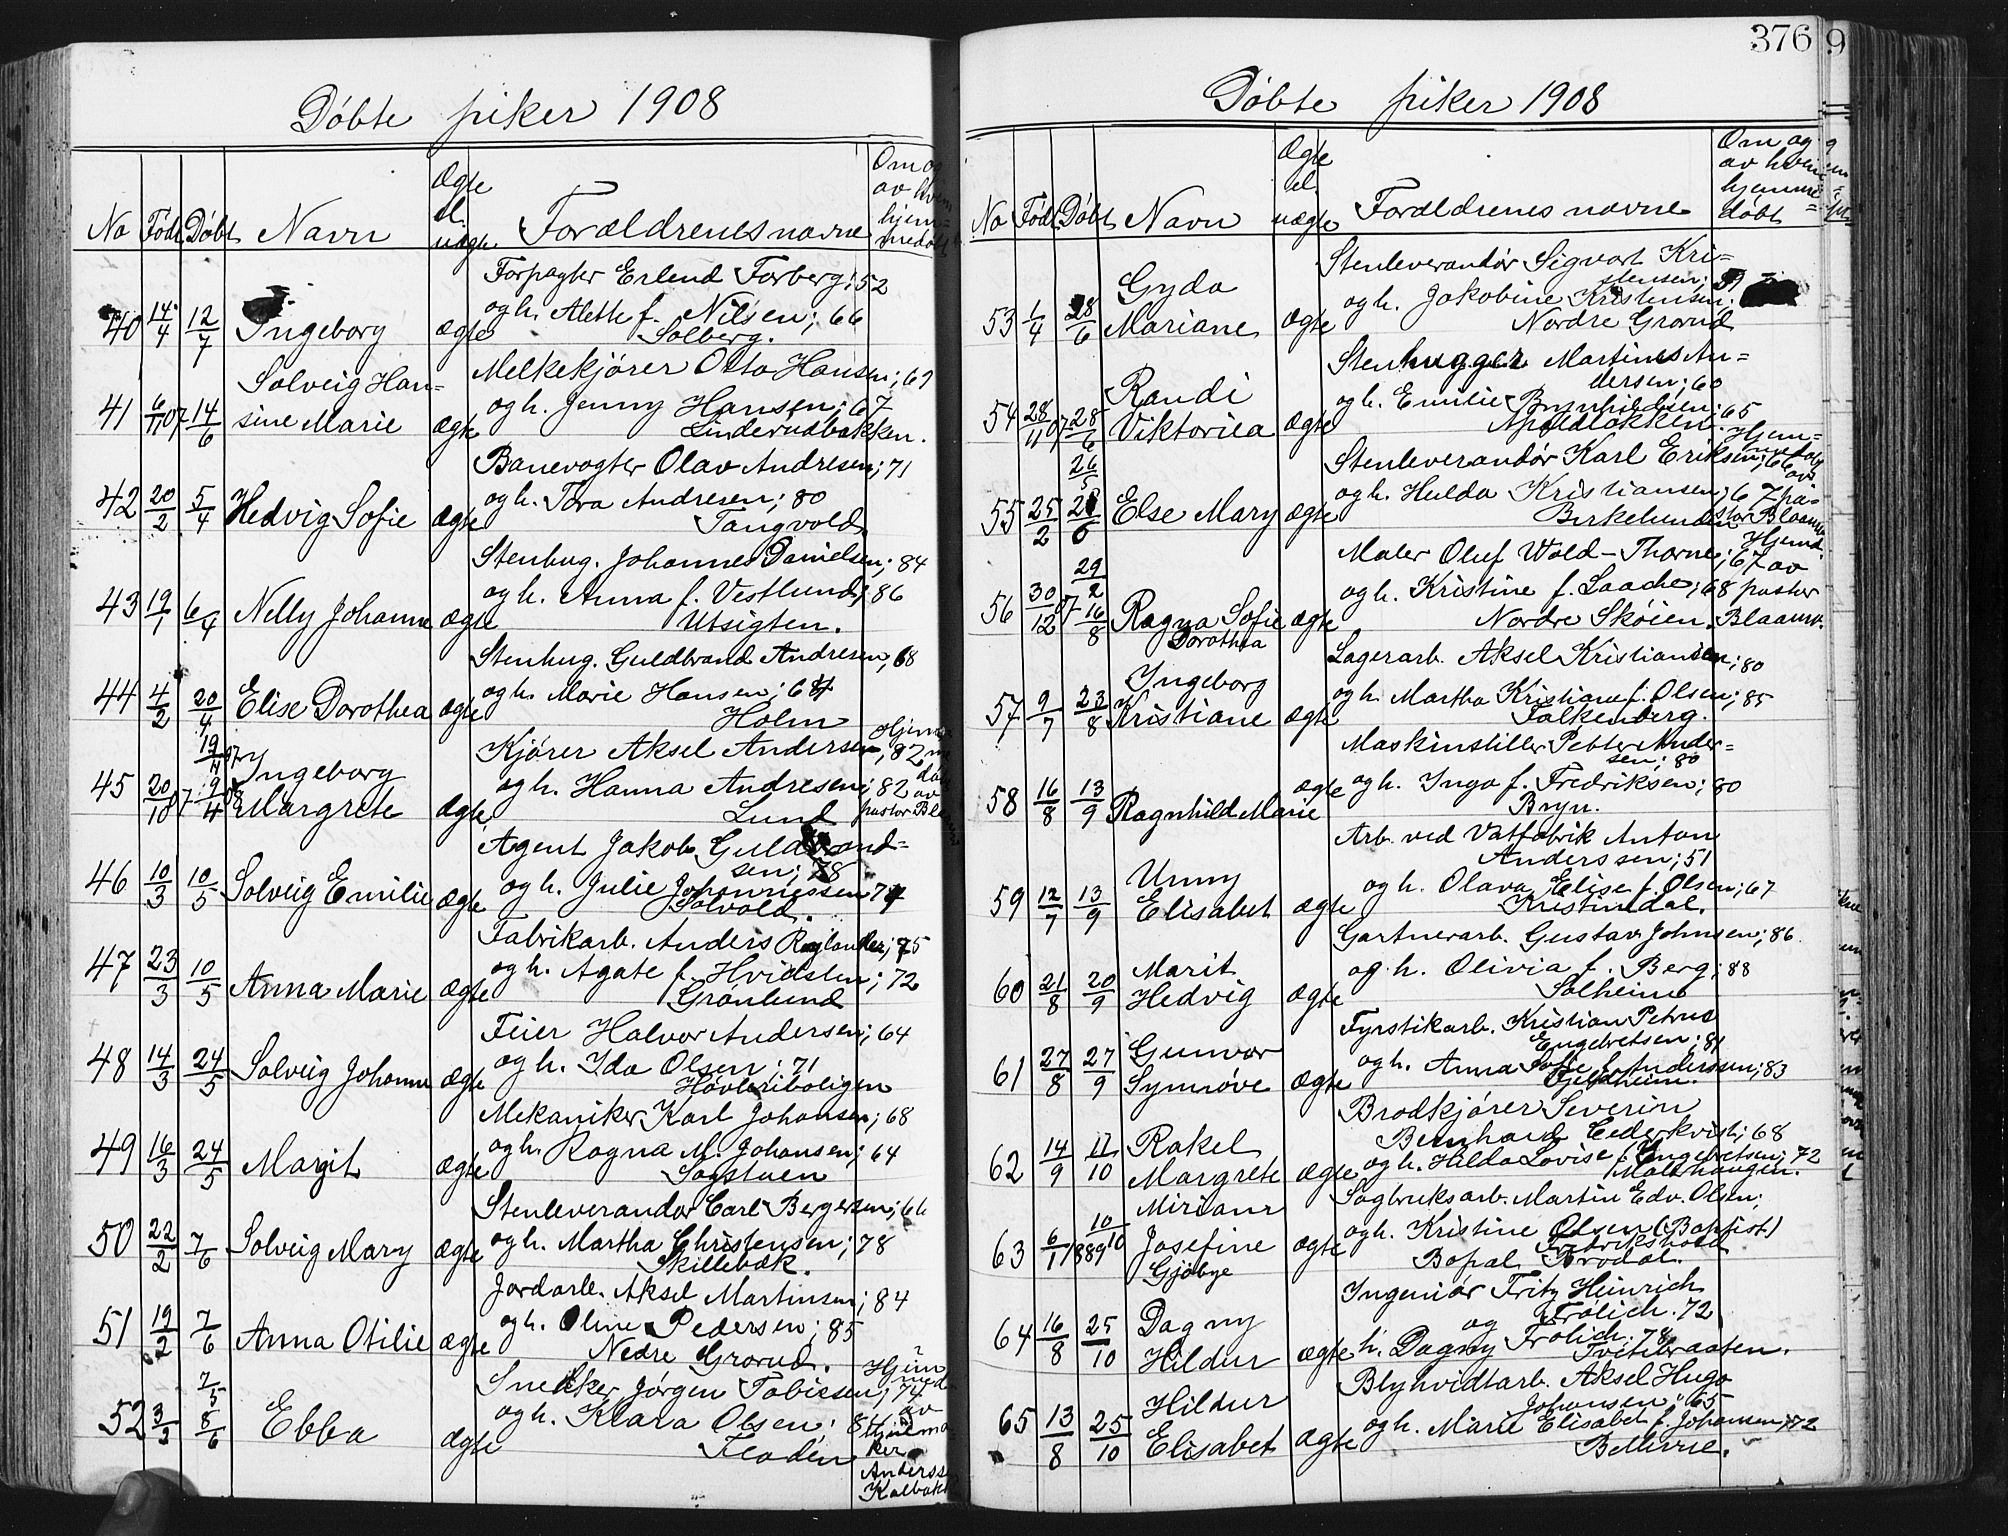 Döbte piker 1908
No Född Döbt Navn Ægte el. uægte Foræld­renes navne Om og av hvem hjem-medöbt
40 14/4 12/7 Ingeborg ægte Forpagter Erlend Forberg; 52
og h. Alette f. Nilsen; 66
Solberg.
41 6/11 07 14/6 Solveig Han-
sine Marie ægte Melkekjörer Otto Hansen; 67
og h. Jenny Hansen; 67
Linderudbakken.
42 20/2 5/4 Hedvig Sofie ægte Banevogter Olav Andresen; 71
og h. Tora Andresen; 80
Tangvold
43 19/1 6/4 Nelly Johanne ægte Stenhug. Johannes Danielsen; 84
og h. Anna f. Vestlund; 86
Utsigten.
44 4/2 20/4 Elise Dorothea ægte Stenhug. Guldbrand Andresen, 68
og h. Marie Hansen; 64
Holm
45 20/10 07 19/4 Ingeborg
Margrete ægte Kjörer Aksel Andersen, 82
og h. Hanna Andresen; 82
Lund
av pastor
46 10/3 10/5 Solveig Emilie ægte Agent Jakob Guldbrand-
sen; 78
og h. Julie Johannessen 74
Solvold.
47 23/3 10/5 Anna Marie ægte Fabrikarb. Anders; 75
og h. Agate f. Hvidsten; 72
Grönlund
48 14/3 24/5 Solveig Johanne ægte Feier Halvor Andersen; 64
og h. Ida Olsen; 71
Höveriboligen
49 16/3 24/5 Margit ægte Mekaniker Karl Johansen; 68
og h. Ragna M. Johansen; 64
Sagstuen
50 22/2 7/6 Solveig Mary ægte Stenleverandör Carl Bergersen; 66
og h. Martha Christensen; 78
Skillebæk.
51 19/2 7/6 Anna Otilie ægte Jordarb. Aksel Martinsen; 84
og h. Oline Pedersen; 85
Nedre Grorud.
52 3/3 7/5 8/6 Ebba ægte Snekker Jörgen Tobiesen; 74
og h. Klara Olsen;
Floden
av
Anderssen
376
Döbte piker 1908
No Född Döbt Navn Ægte el. uægte Forældrenes navne Om og av hvem hjemme-döbt
53 1/4 28/6 Gyda
Mariane ægte Stenleverandör Sigvart Kri-
stensen;
og h. Jakobine Kristensen.
Nordre Grorud
54 28/11 07 28/6 Randi
Viktoria ægte Stenhugger Martines An-
dersen; 60
og h. Emilie Brynhildsen; 65
Apaldlökken.
55 25/2 26/5 28/6 Else Mary ægte Stenleverandör Karl Eriksen; 66
og h. Hulda Kristiansen; 67
Birkelund
Hjem-
av pa-
stor Blaauw
56 30/12 07 29/2 16/8 Ragna Sofie
Dorothea ægte Maler Oluf Wold-Thorne; 67
og h. Kristine f. Laache; 68
Nordre Sköien.
Hjemd.
av
pastor
Blaauw.
57 9/7 23/8 Ingeborg
Kristiane ægte Lagerarb. Aksel Kristiansen; 80
og h. Martha Kristiane f. Olsen; 85
Falkenberg.
58 16/8 13/9 Ragnhild Marie ægte Maskinstiller Petter Ander-
sen; 80
og h. Inga f. Fredriksen; 80
Bryn.
59 12/7 13/9 Unny
Elisabet ægte Arb. ved Vatfabrik Anton
Anderssen; 51
og h. Olava Elise f. Olsen; 67
Kristindal.
60 21/8 20/9 Marit
Hedvig ægte Gartnerarb. Gustav Johnsen; 86
og h. Olivia f. Berg; 88
Solheim
61 27/8 27/9 Gunvor
Synnöve ægte Fyrstikarb. Kristian Petrus
Engebretsen; 81
og h. Anna Sofie f. Anderssen; 83
62 14/9 11/10 Rakel
Margrete ægte Brodkjörer Severin
Bernhard Cederkvist; 68
og h. Hilda Lovise f. Engebretsen; 72
Malerhaugen.
63 6/1 1889 10/10 Miriam
Josefine
Gjöbye ægte Sagbruksarb. Martin Edv. Olsen;
og h. Kristine Olsen (Baptist)
Fredrikshald
64 16/8 25/10 Dagny
Hildur ægte Ingeniör Fritz Heinrich
Frölich. 72
og
h. Dagny Frölich. 78
Tvetebraaten.
65 13/8 25/10 Hildur
Elisabet ægte Blyhvidtarb. Aksel Hugo
Johansen; 65
og h. Marie Elisabet f. Johansen; 72
Bellevue.